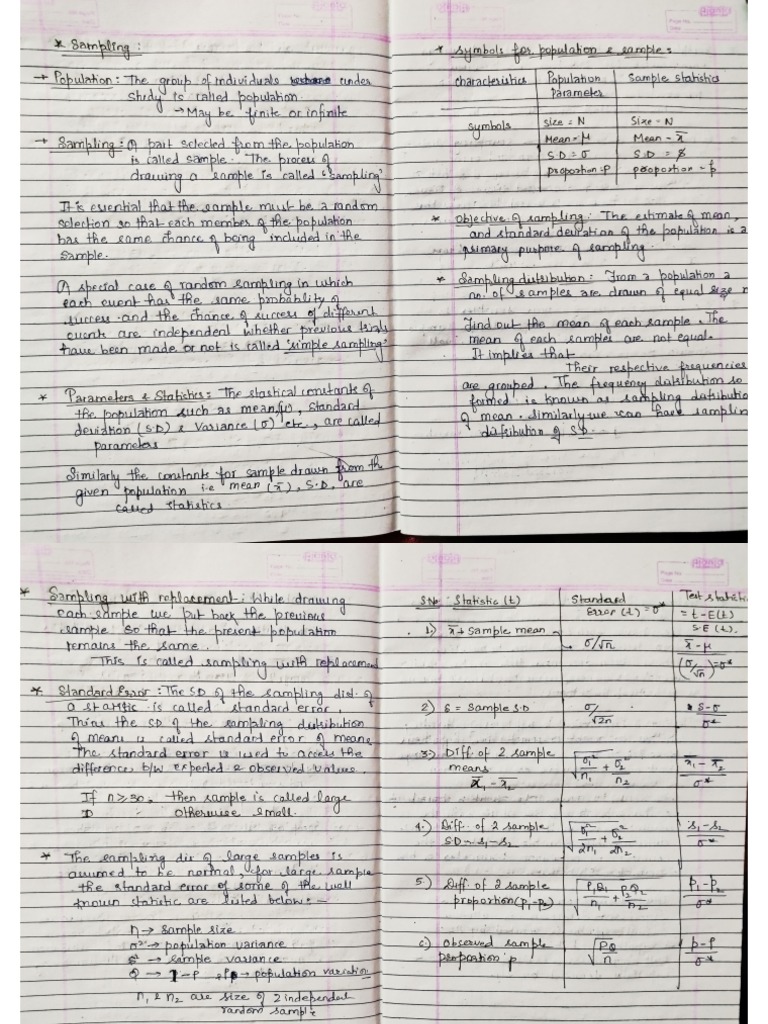 * Sampling :
→ Population : The group of individuals under
study is called population.
→ May be finite or infinite
→ Sampling : A part selected from the population
is called sample. The process of
drawing a sample is called 'sampling'
It is essential that the sample must be a random
selection so that each member of the population
has the same chance of being included in the
sample.
A special case of random sampling in which
each event has the same probablity of
success and the chance of success of different
events are independent whether previous trials
have been made or not is called 'simple sampling'
* Parameters & Statistics : The stastical constants of
the population such as mean(μ), standard
deviation (S.D) & Variance (σ) etc., are called
parameters
Similarly the constants for sample drawn from the
given population i.e mean (x̄), S.D, are
called statistics
* Symbols for population & sample :
characteristics | Population Parameter | Sample statistics
symbols | Size = N | Size = N
Mean = μ | Mean = x̄
S.D = σ | S.D = s
proportion = P | proportion = p
* Objective of sampling : The estimate of mean,
and standard deviation of the population is a
primary purpose of sampling.
* Sampling distribution : From a population a
no. of samples are drawn of equal size n
Find out the mean of each sample. The
mean of each samples are not equal.
It implies that
Their respective frequencies
are grouped. The frequency distribution so
formed is known as sampling distributio
of mean. Similarly we can have samplin
distribution of SD.
* Sampling with replacement : While drawing
each sample we put back the previous
sample so that the present population
remains the same.
This is called sampling with replacement
* Standard Error : The SD of the sampling dist. of
a statitic is called standard error.
Thus the SD of the sampling distribution
of means is called standard error of means
The standard error is used to access the
difference b/w expected & observed values.
If n ≥ 30, then sample is called large
otherwise small.
* The sampling dis of large samples is
assumed to be normal, for large sample
the standard error of some of the well
known statistic are listed below :-
n → Sample size
σ² → population variance
s² → sample variance
Q → 1-P → population variation
n₁ & n₂ are size of 2 independent
random sample
S.No. Statistic (t) | Standard Error (t) = σ* | Test statisti = t-E(t) / S.E (t).
1.) x̄ → Sample mean | σ/√n | x̄-μ / (σ/√n) = σ*
2) s = Sample S.D | σ/√2n | s-σ / σ*
3.) Diff of 2 sample means x̄₁ - x̄₂ | √(σ₁²/n₁ + σ₂²/n₂) | x̄₁ - x̄₂ / σ*
4.) Diff. of 2 sample SD ~ s₁-s₂ | √(σ₁²/2n₁ + σ₂²/2n₂) | s₁-s₂ / σ*
5) Diff of 2 sample proportion (p₁-p₂) | √(P₁Q₁/n₁ + P₂Q₂/n₂) | p₁-p₂ / σ*
6) Observed sample proportion : p | √(PQ/n) | p-P / σ*